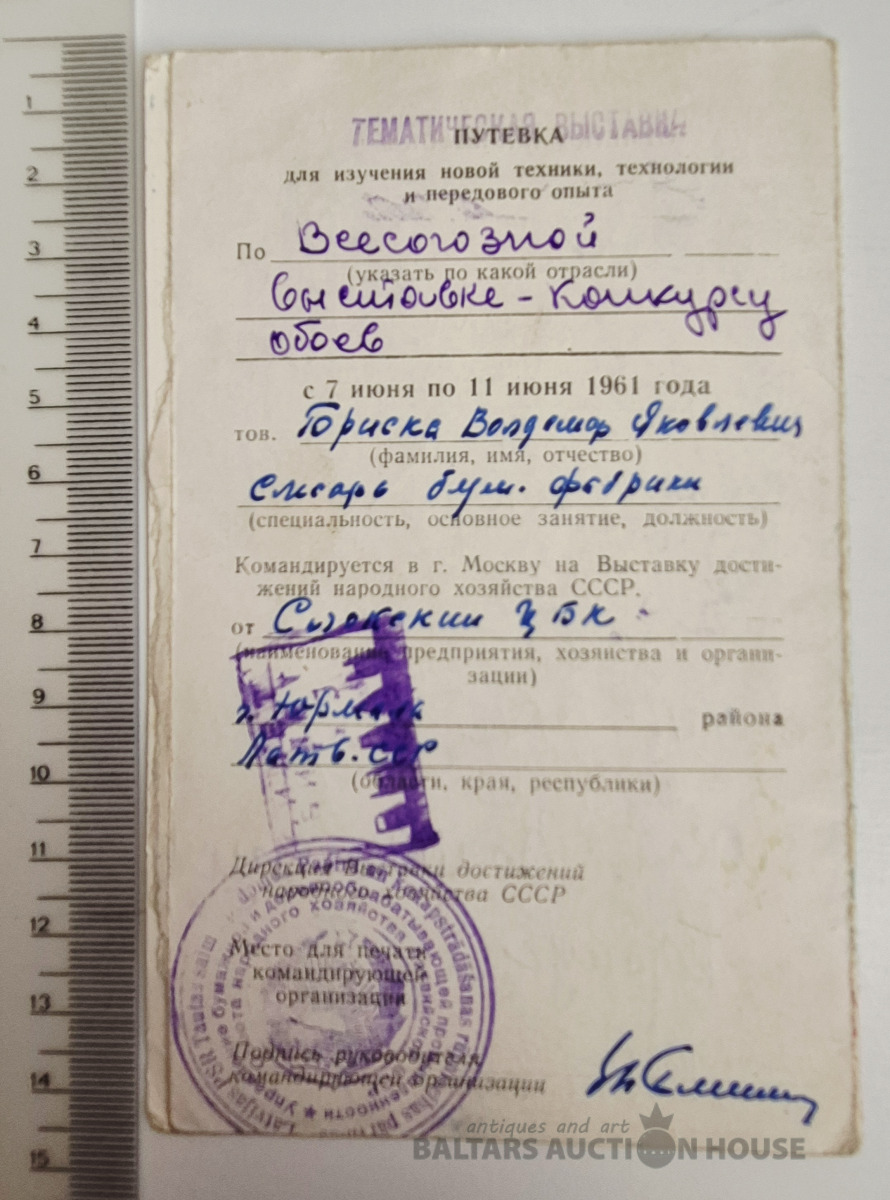 ТЕМАТИЧЕСКАЯ ВЫСТАВКА
ПУТЕВКА
для изучения новой техники, технологии
и передового опыта
По Всесоюзной
(указать по какой отрасли)
выставке - конкурсу
обоев
с 7 июня по 11 июня 1961 года
тов. Ториска Волдемар Яковлевич
(фамилия, имя, отчество)
слесарь бум. фабрики
(специальность, основное занятие, должность)
Командируется в г. Москву на Выставку дости-
жений народного хозяйства СССР.
от Слокский ЦБК
(наименование предприятия, хозяйства и органи-
зации)
г. Юрмала района
Латв. ССР
(области, края, республики)
Дирекция Выставки достижений
народного хозяйства СССР
Место для печати
командирующей
организации
Подпись руководителя
командирующей организации
Latvijas PSR Tautas saim
kokapstrādāšanas rūpniecības
1
2
3
4
5
6
7
8
9
10
11
12
13
14
15
antiques and art
BALTARS AUCTION HOUSE